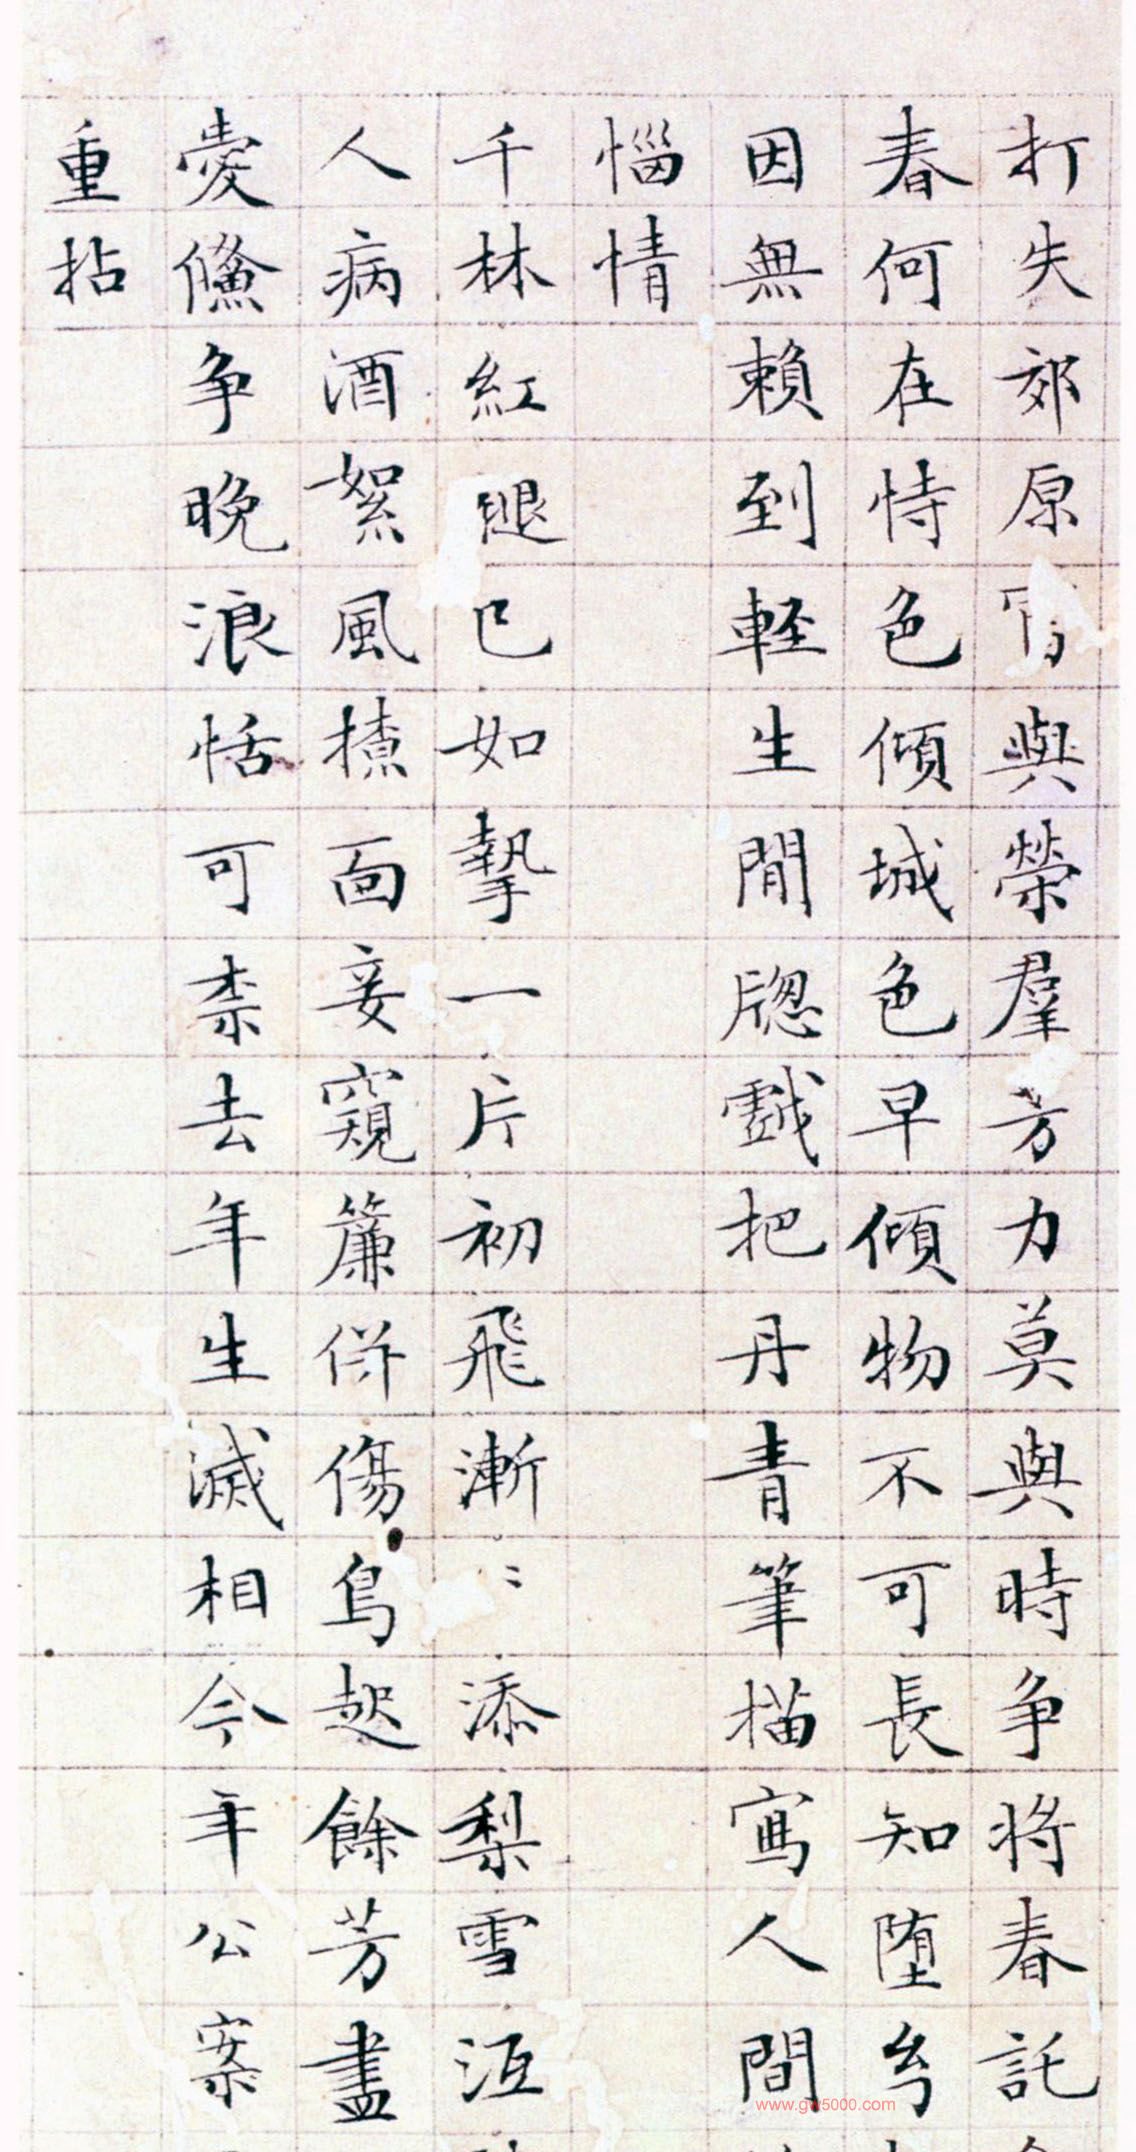 打失郊原富與榮羣芳力莫與時爭將春託
春何在恃色傾城色早傾物不可長知堕
因無賴到輕生閒牕戲把丹青筆描寫人間
惱情
千林紅褪已如摯一片初飛漸〻添梨雪沍
人病酒絮風揍面妾窺簾併傷鳥起餘芳盡
愛儵爭晚浪恬可柰去年生滅相今年公案
重拈
www.gw5000.com